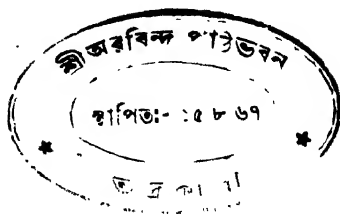 শ্রীঅরবিন্দ পাঠভবন
স্থাপিতঃ- :৫ ৮ ৬৭